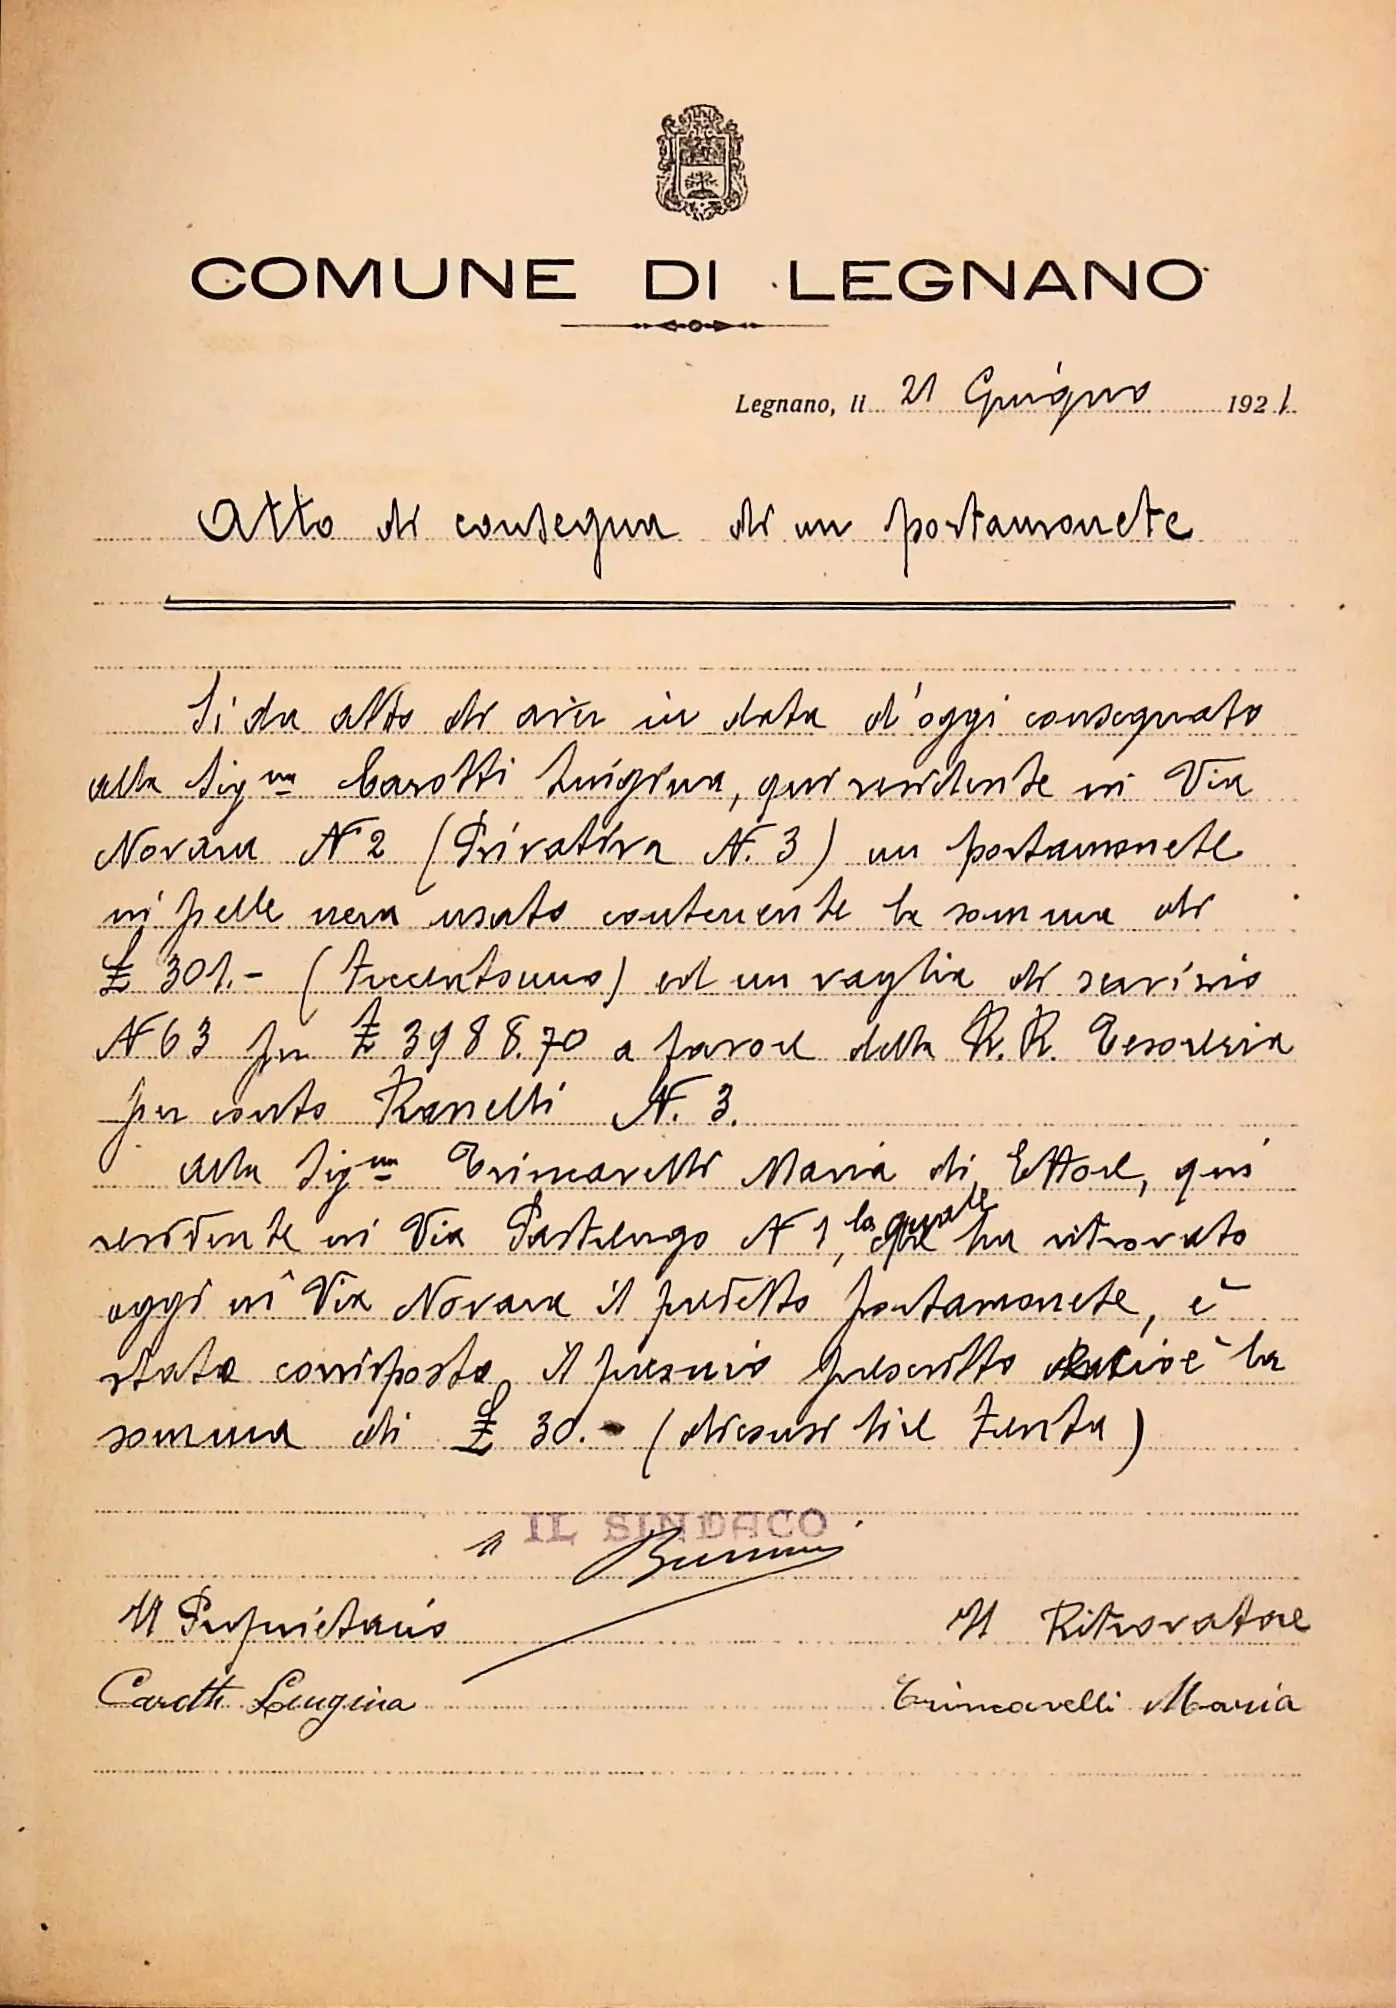 COMUNE DI LEGNANO
Legnano, li 21 Giugno 1921.
Atto di consegna di un portamonete
Si da atto di aver in data d'oggi consegnato
alla Signa Carotti Luigina, qui residente in Via
Novara N° 2 (Privativa N. 3) un portamonete
in pelle nera usato contenente la somma di
£ 301.- (trecentouno) ed un vaglia di servizio
N 63 per £ 3988.70 a favore della R. R. Tesoreria
per conto N. 3.
Alla Signa Trincavelli Maria di Ettore, qui
residente in Via Pastrengo N 1, la quale ha ritrovato
oggi in Via Novara il predetto portamonete, è
stato corrisposto il premio prescritto cioè la
somma di £ 30.- (diconsi lire trenta)
IL SINDACO
Il Proprietario Il Ritrovatore
Carotti Luigina Trincavelli Maria